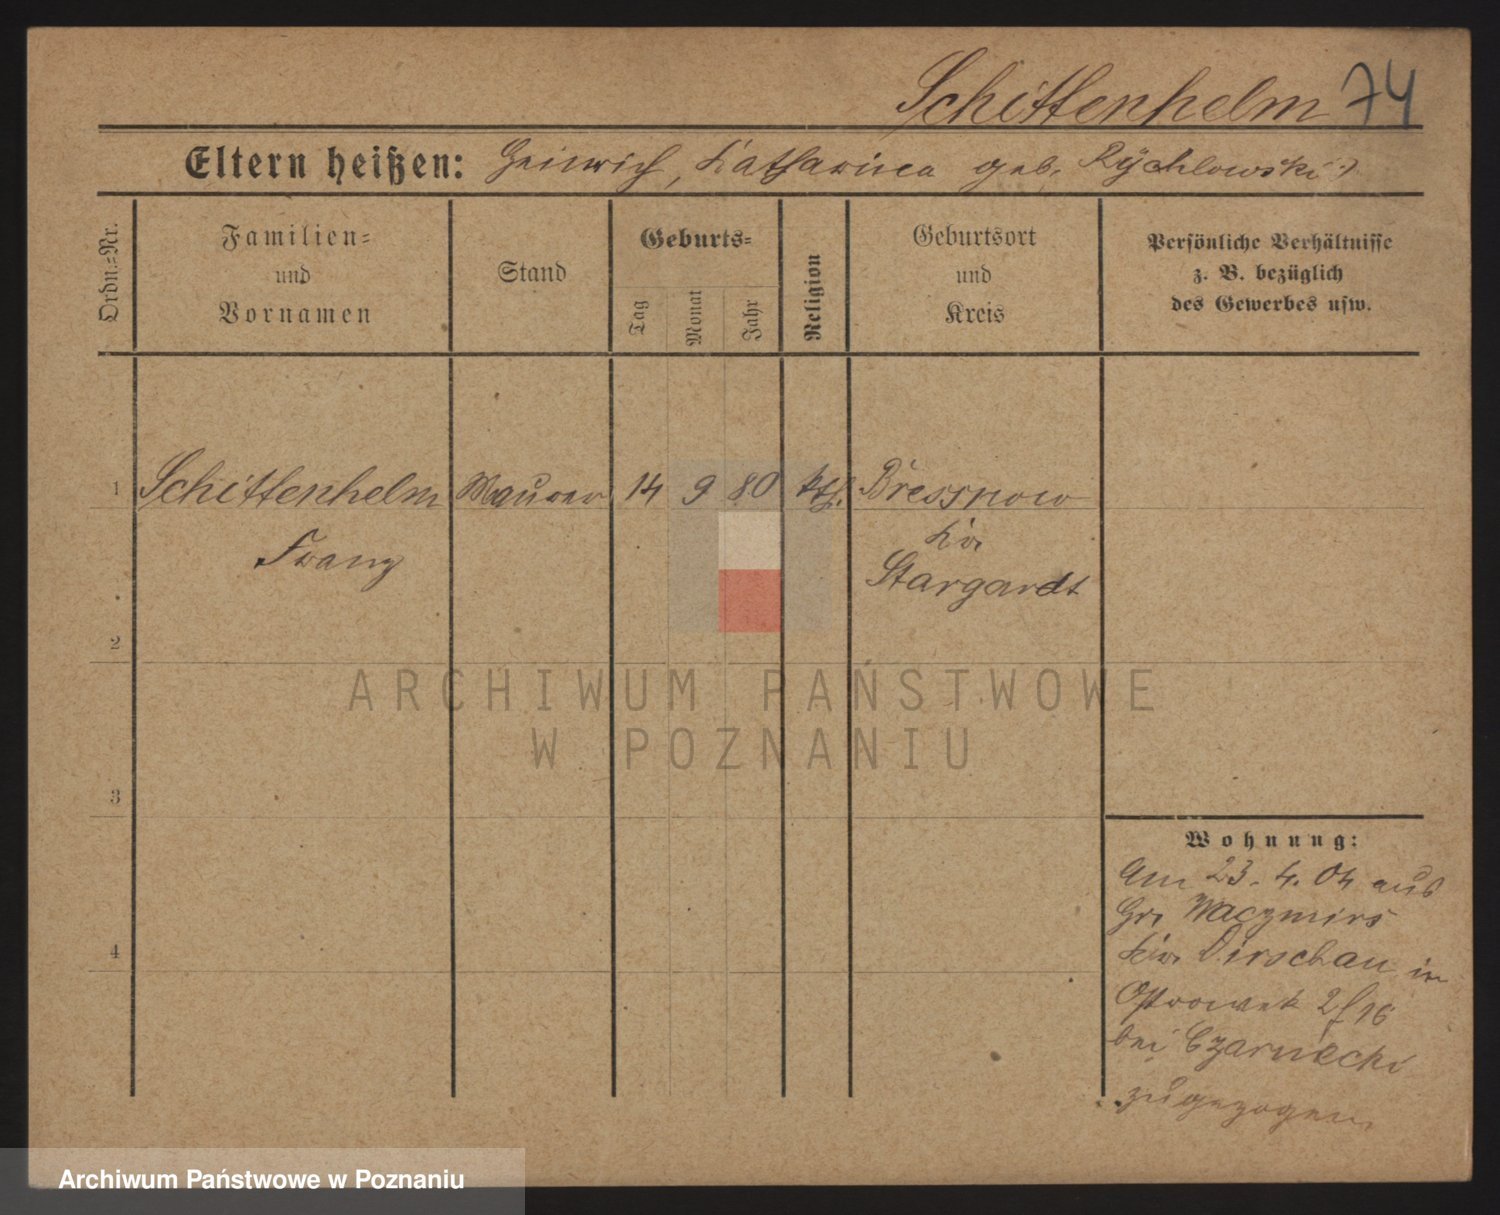 Schittenhelm 74
Eltern heißen: Heinrich, Katharina geb. Rychlowski
Ordn.=Nr.
Familien=
und
Vornamen
Stand
Geburts=
Tag
Monat
Jahr
Religion
Geburtsort
und
Kreis
Persönliche Verhältnisse
z. B. bezüglich
des Gewerbes usw.
1 Schittenhelm Maurer 14 9 80 kth. Bressnow
Franz
Kr.
Stargardt
2
3
4
ARCHIWUM PAŃSTWOWE
W POZNANIU
Wohnung:
Am 23. 4. 04 aus
Gr. Waczmirs
Kr. Dirschau in
Ostrowek 2/16
bei Czarnecki
zugezogen.
Archiwum Państwowe w Poznaniu